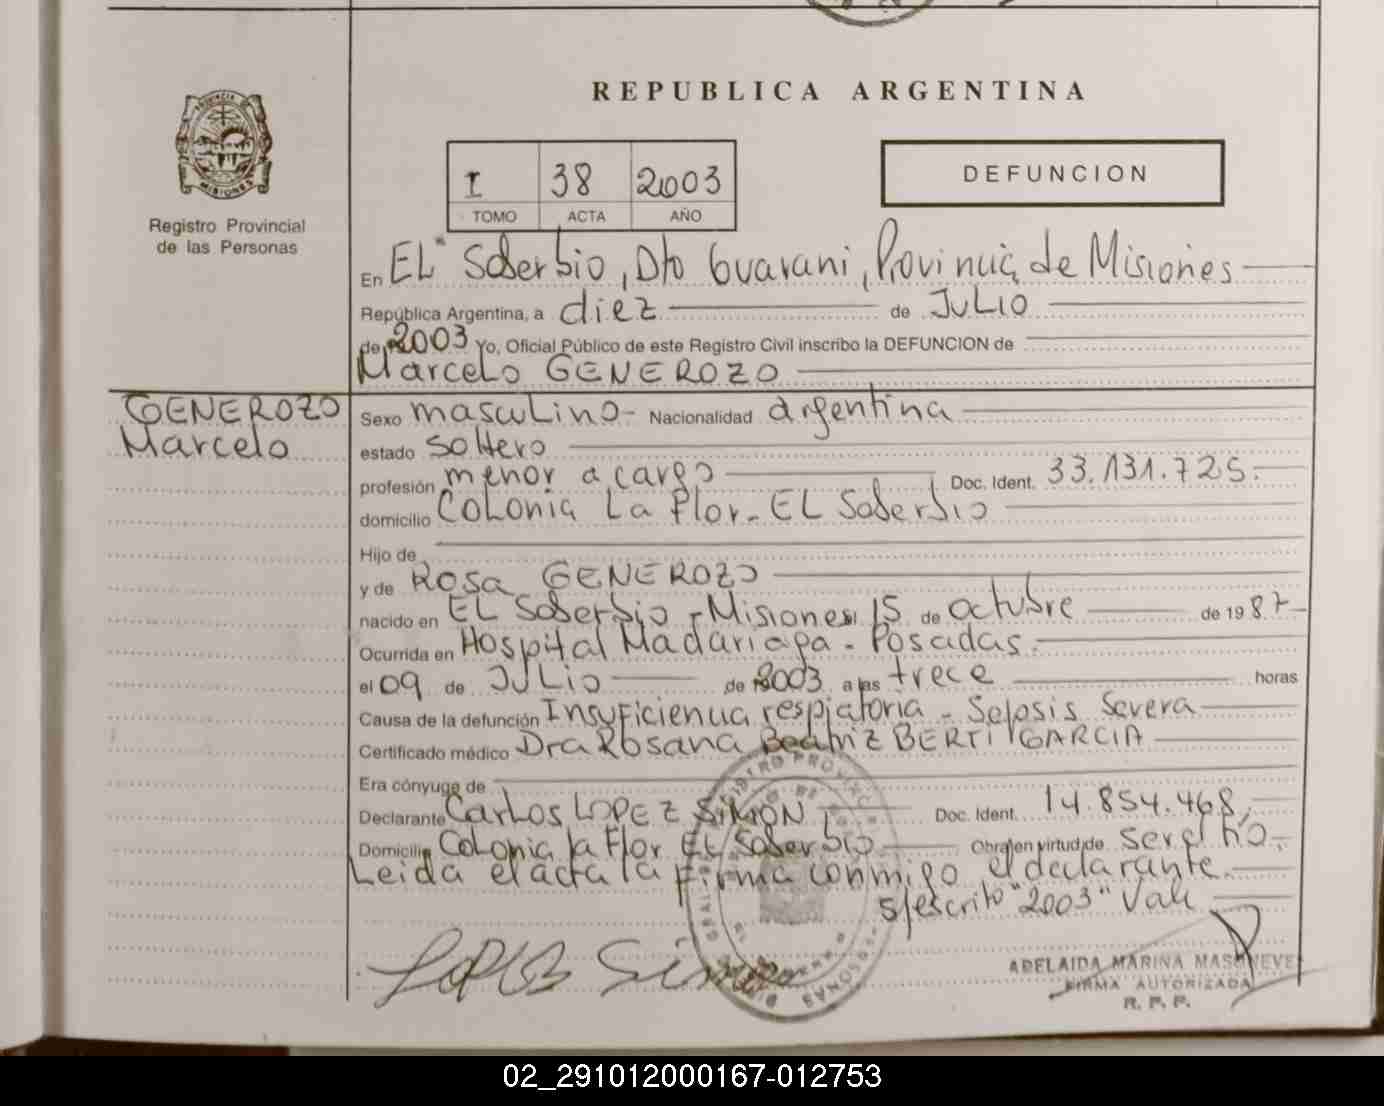 REPUBLICA ARGENTINA
PROVINCIA DE
MISIONES
Registro Provincial
de las Personas
I 38 2003
TOMO ACTA AÑO
DEFUNCION
En EL Soberbio, Dto Guarani, Provincia de Misiones
República Argentina, a diez de JULIO
de 2003 Yo, Oficial Público de este Registro Civil inscribo la DEFUNCION de
Marcelo GENEROZO
GENEROZO
Marcelo
Sexo masculino- Nacionalidad argentina
estado soltero
profesión menor a cargo Doc. Ident. 33.131.725.
domicilio Colonia La Flor - EL Soberbio
Hijo de
y de Rosa GENEROZO
nacido en EL Soberbio - Misiones 15 de octubre de 19 87
Ocurrida en Hospital Madariaga - Posadas.
el 09 de JULIO de 2003 a las trece horas
Causa de la defunción Insuficiencia respiatoria - Sepsis Severa
Certificado médico Dra Rosana Beatriz BERTI GARCIA
Era cónyuge de
Declarante Carlos LOPEZ SIMON Doc. Ident. 14.854.468,
Domicilio Colonia la Flor EL Soberbio Obra en virtud de ser el
Leida el acta la firma conmigo el declarante.
s/escrito "2003" Vale
LOPES
ADELAIDA MARINA
FIRMA AUTORIZADA
R. P. P.
02_291012000167-012753